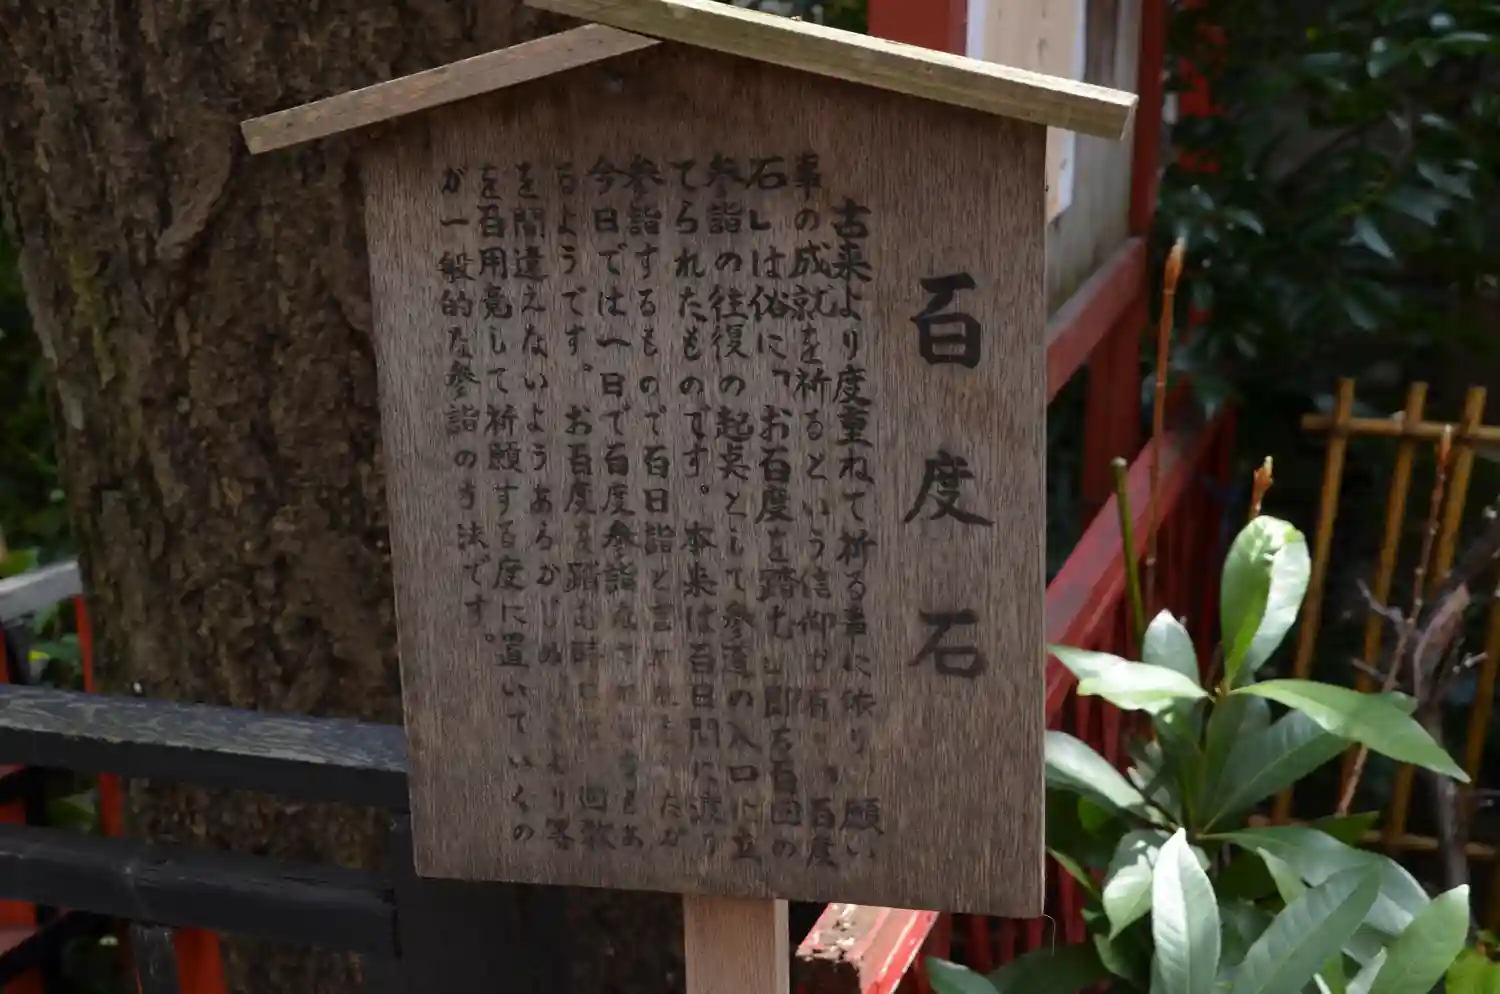 百度石
古来より度重ねて祈る事に依り 願い
事の成就を祈るという信仰が有 り 百度
石」は俗に「お百度を踏む」即ち百回の
参詣の往復の起点として参道の入口に立
てられたものです。本来は百日間に渡り
参詣するもので百日詣と言 たが
今日では一日で百度参詣 るもあ
るようです。お百度を踏む時 回数
を間違えないようあらかじめ より 客
を百用意して祈願する度に置いていくの
が一般的な参詣の方法です。